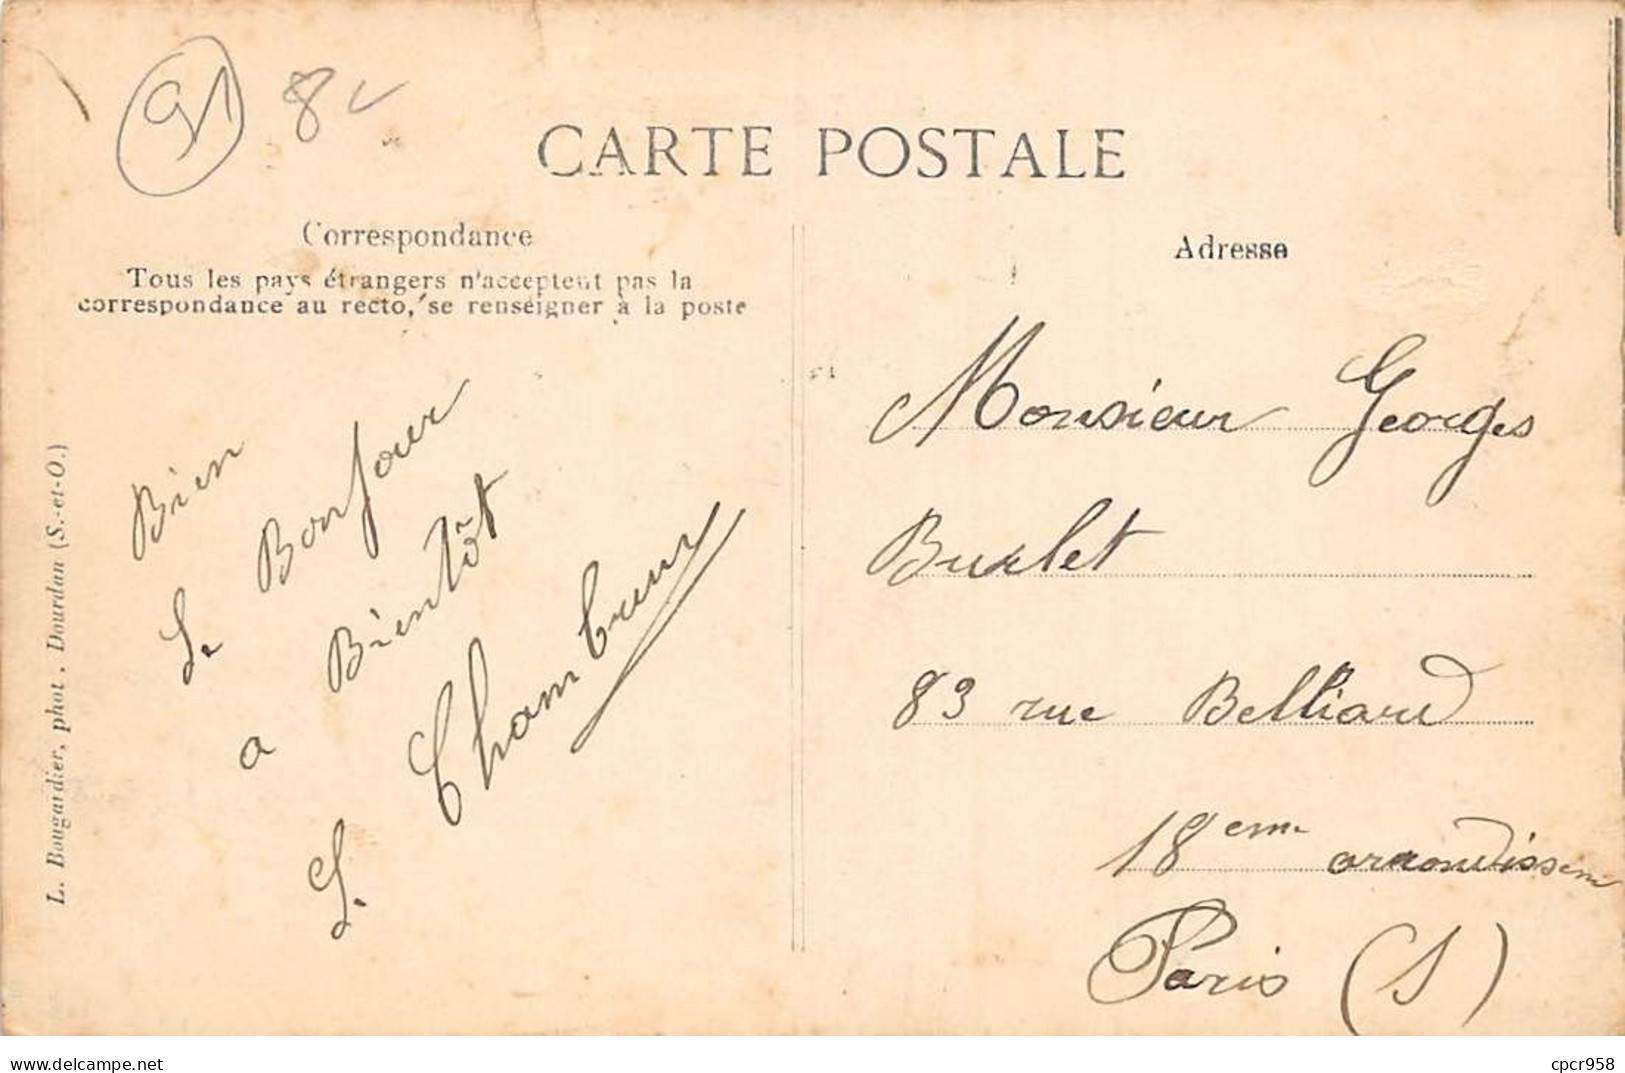 91 8
CARTE POSTALE
Correspondance
Tous les pays étrangers n'acceptent pas la
correspondance au recto, se renseigner à la poste
Bien
Le Bonjour
a Bientôt
L. Chambrun
L. Bougardier, phot. Dourdan (S.-et-O.)
Adresse
Monsieur Georges
Burlet
83 rue Belliard
18eme arrondissem
Paris (S)
delcampe.net
cpcr958